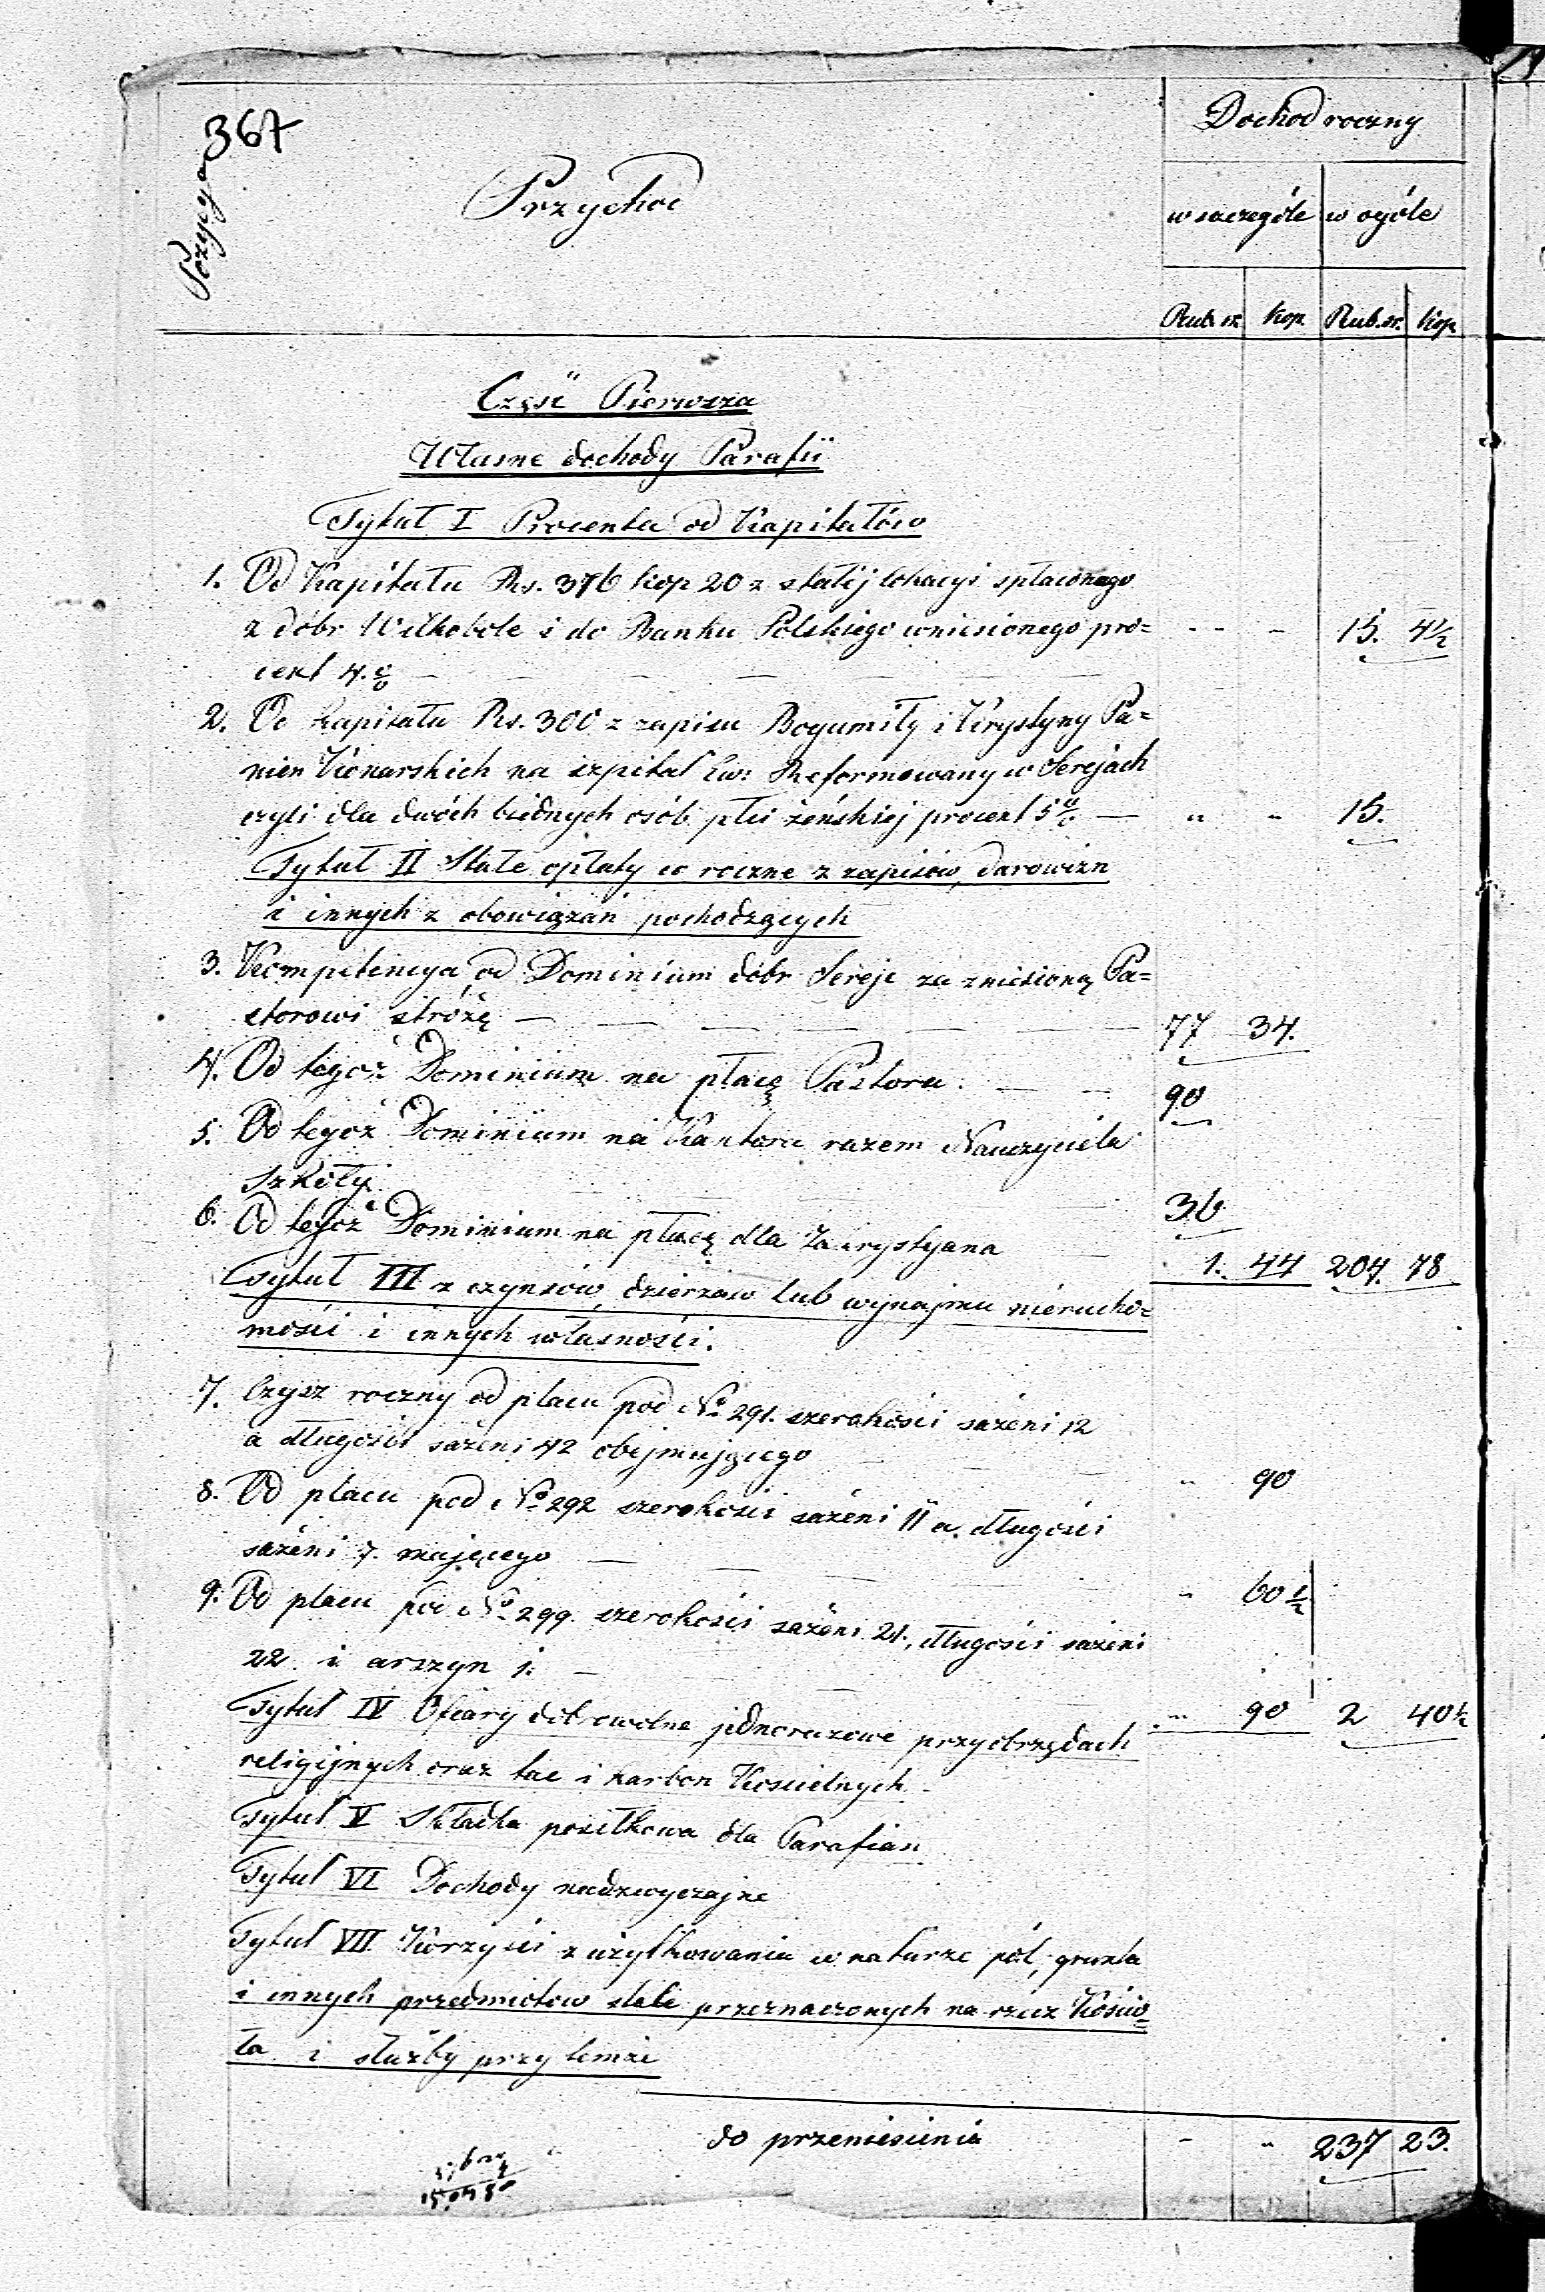 367
Pozycya
Przychod
Dochod roczny
w szczególe w ogóle
Rub. sr. Kop. Rub. sr. Kop.
Część Pierwsza
Własne dochody Parafii
Tytuł I Procenta od Kapitałów
1. Od Kapitału Rs. 376 kop 20 z stałéj lokacyi spłaconego
z dóbr Wiłkobole i do Banku Polskiego wniesionego pro=
cent 4. % — — — — 15. 4½
2. Od Kapitału Rs. 300 z zapisu Bogumiły i Krystyny Pa=
nien Konarskich na szpital Ew: Reformowany w Serejach
czyli dla dwóch biednych osób płci żeńskiej procent 5 % — „ „ 15.
Tytuł II Stałe opłaty w roczne z zapisów, darowizn
i innych z obowiązań pochodzących
3. Kompetencya od Dominium dóbr Sereje za zniesioną Pa=
storowi stróżę — — — 77 34.
4. Od tegoż Dominium na płacę Pastora. — — 90
5. Od tegoż Dominium na Kantora razem Nauczyciela
Szkoły 36
6. Od tegoż Dominium na płacę dla Zakrystyana — 1. 44 204. 78
Tytuł III z czynszów, dzierżaw lub wynajmu nierucho=
mości i innych własności.
7. Czysz roczny od placu pod No 291. szerokości sażeni 12
a długości sażeni 42 obejmującego „ 90
8. Od placu pod No 292 szerokości sażeni 11 a długości
sażeni 7. mającego — — „ 60½
9. Od placu pod No 299. szerokości sażeni 21., długości sażeni
22. i arszyn 1. — „ 90 2 40½
Tytuł IV Ofiary dobrowolne jednorazowe przy obrzędach
religijnych oraz tac i karbon Kościelnych
Tytuł V Składka posiłkowa dla Parafian
Tytuł VI Dochody nadzwyczajne
Tytuł VII Korzyści z użytkowania w naturze pól, grunta
i innych przedmiotów stale przeznaczonych na rzecz Kościo=
ła i służby przy temże
do przeniesienia - „ 237 23.